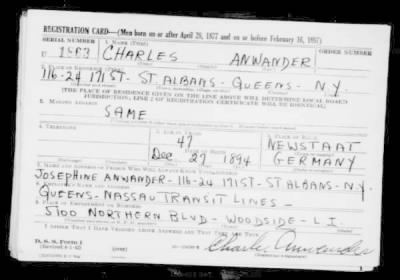 REGISTRATION CARD—(Men born on or after April 28, 1877 and on or before February 16, 1897)
SERIAL NUMBER 1. NAME (Print) ORDER NUMBER
U 1863 CHARLES ANWANDER
2. PLACE OF RESIDENCE (Print)
116-24 191 ST- ST. ALBANS- QUEENS- N.Y.
[THE PLACE OF RESIDENCE GIVEN ON THE LINE ABOVE WILL DETERMINE LOCAL BOARD
JURISDICTION; LINE 2 OF REGISTRATION CERTIFICATE WILL BE IDENTICAL]
3. MAILING ADDRESS
SAME
4. TELEPHONE 5. AGE IN YEARS 6. PLACE OF BIRTH
47 NEWSTAAT
DATE OF BIRTH
Dec. 27 1894 GERMANY
7. NAME AND ADDRESS OF PERSON WHO WILL ALWAYS KNOW YOUR ADDRESS
JOSEPHINE ANWANDER-116-24 191 ST-ST ALBANS-N.Y.
8. EMPLOYER'S NAME AND ADDRESS
QUEENS-NASSAU TRANSIT LINES-
9. PLACE OF EMPLOYMENT OR BUSINESS
5100 NORTHERN BLVD- WOODSIDE- L.I.
I AFFIRM THAT I HAVE VERIFIED ABOVE ANSWERS AND THAT THEY ARE TRUE.
D. S. S. Form 1
(Revised 4-1-42) Charles Anwander